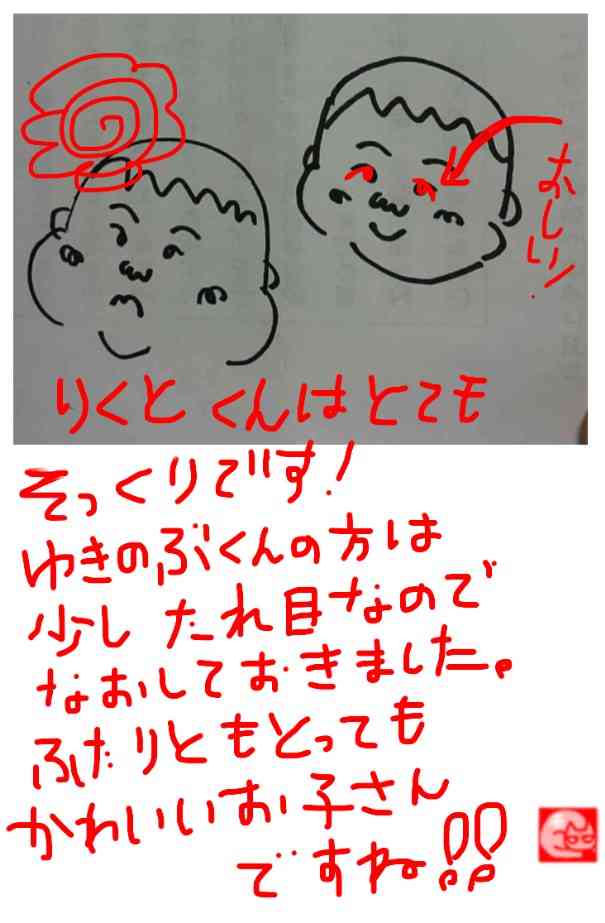 おしい!
りくとくんはとても
そっくりです!
ゆきのぶくんの方は
少したれ目なので
なおしておきました。
ふたりともとっても
かわいいお子さん
ですね!!